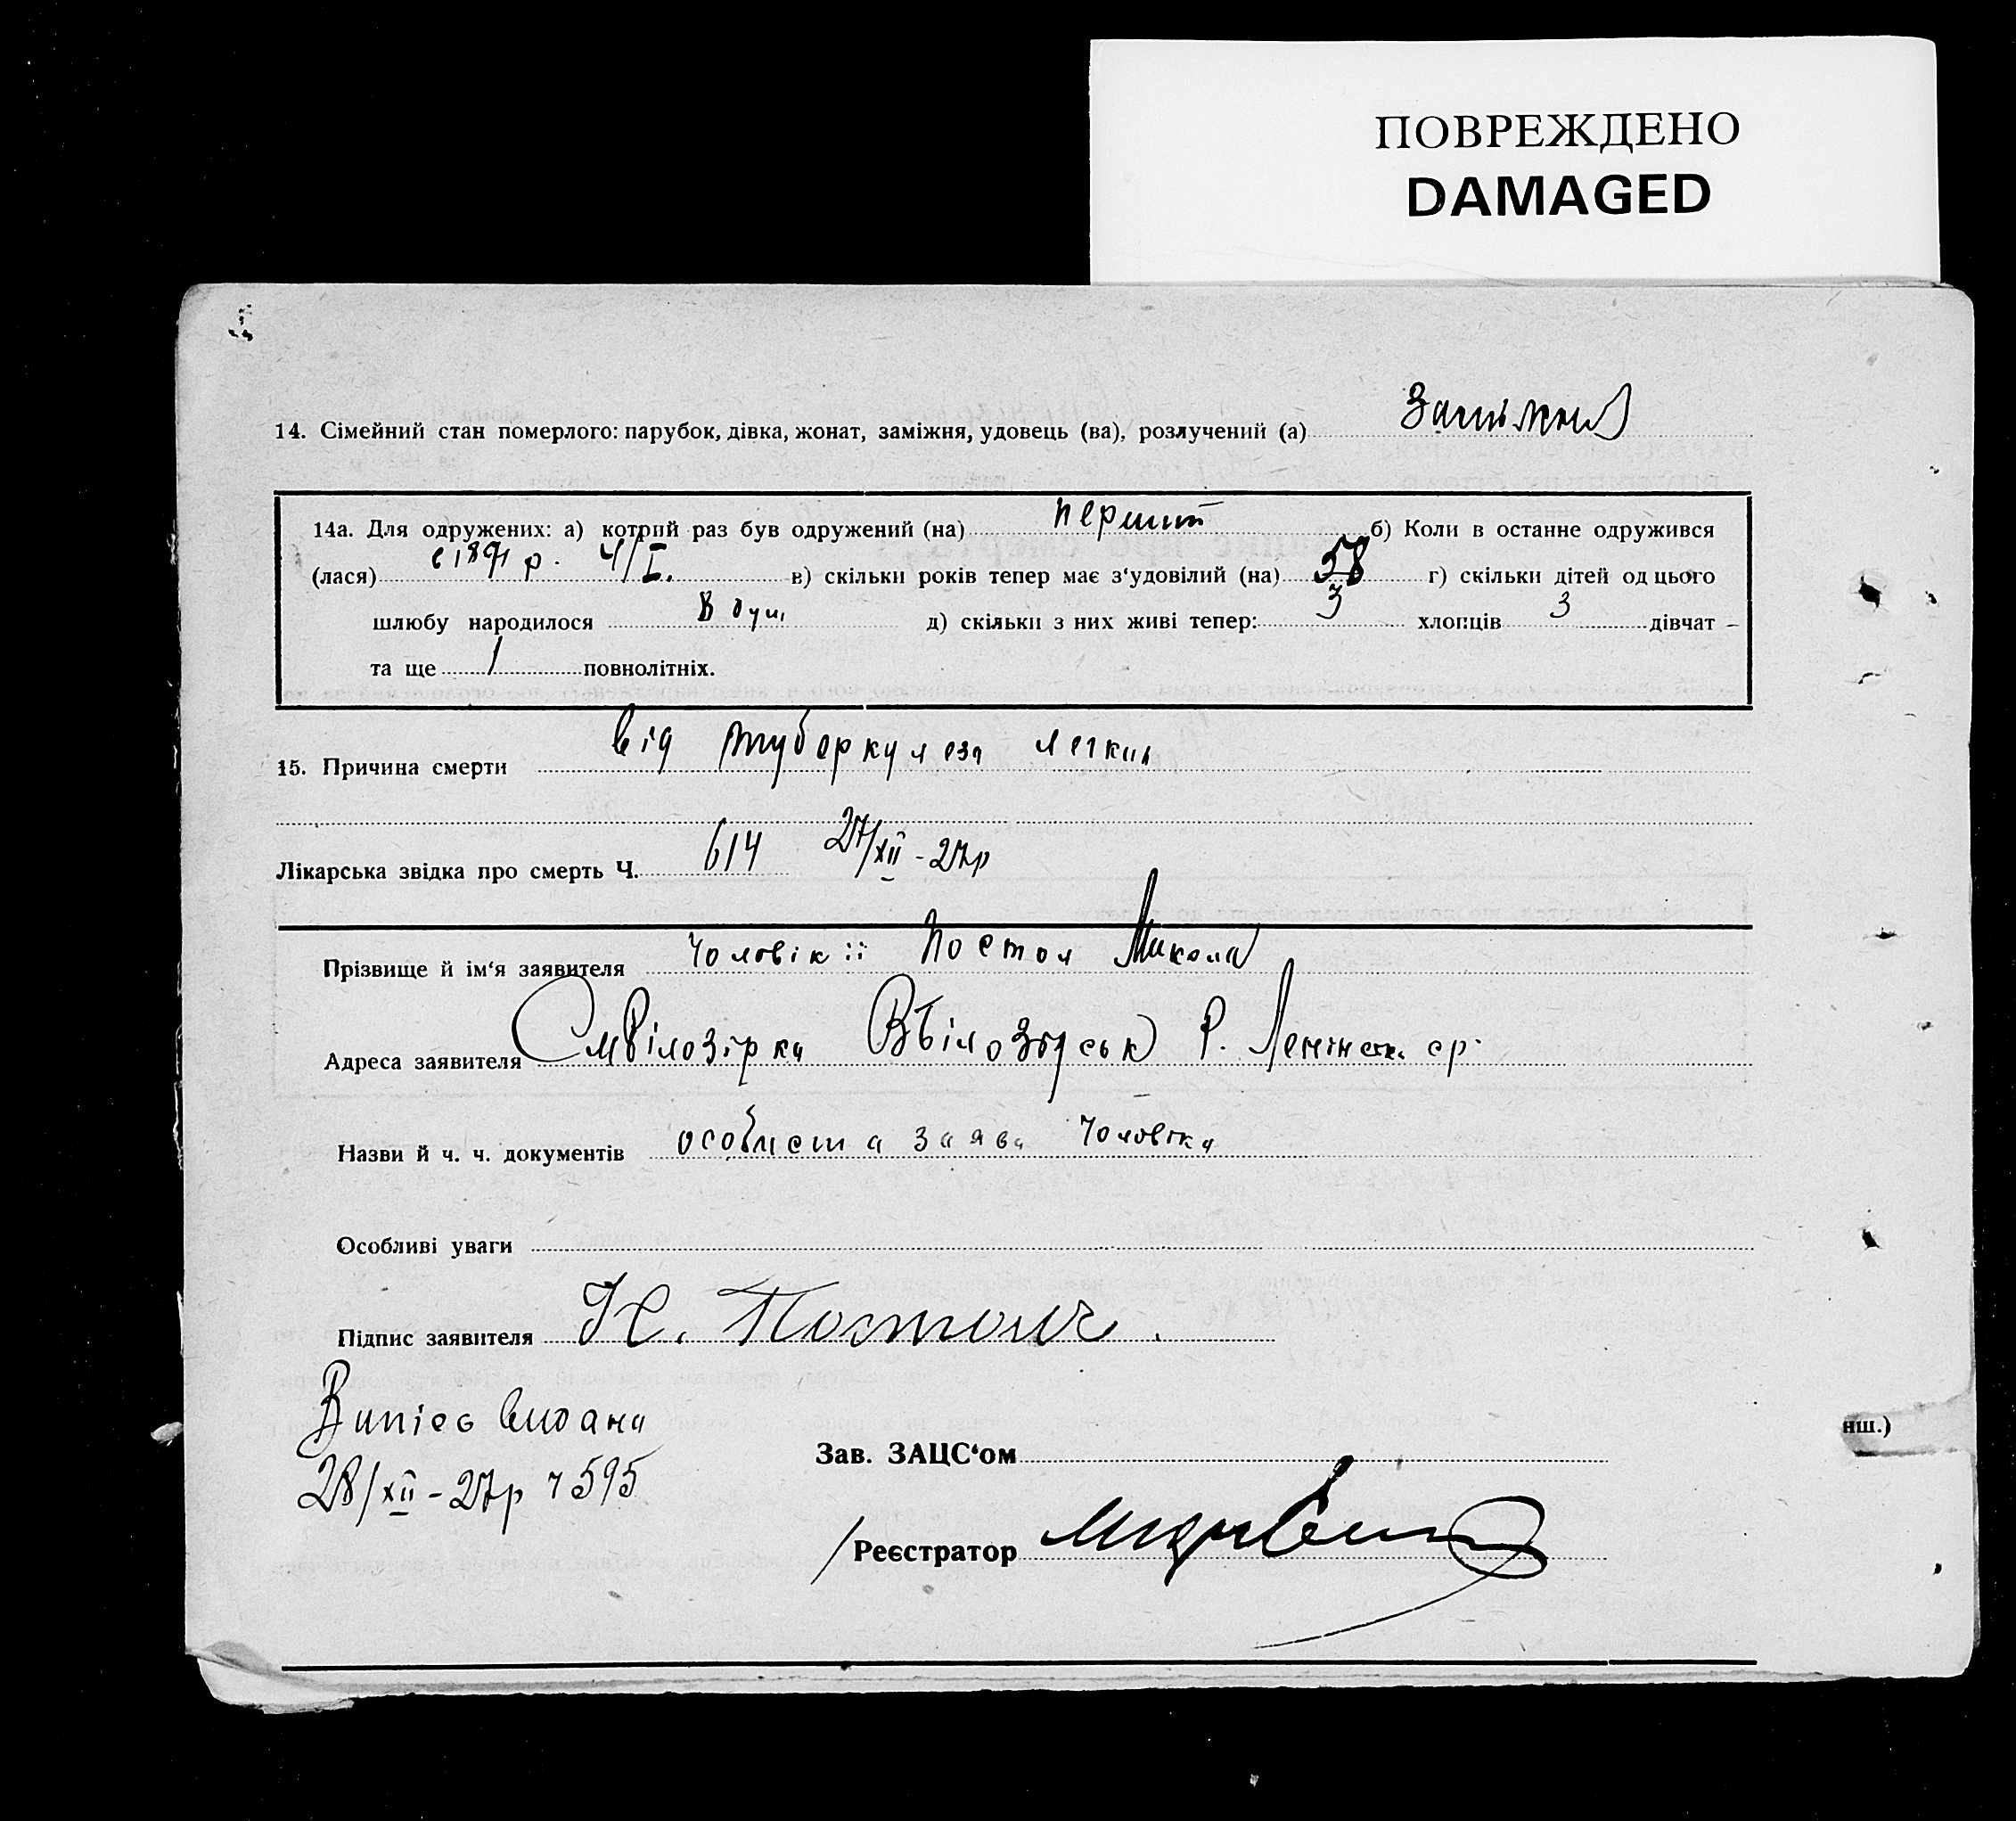 ПОВРЕЖДЕНО
DAMAGED
14. Сімейний стан померлого: парубок, дівка, жонат, заміжня, удовець (ва), розлучений (а)
14а. Для одружених: а) котрий раз був одружений (на) перший б) Коли в останне одружився
(лася) р. 4/I. в) скільки років тепер має з‘удовілий (на) 58 г) скільки дітей од цього
шлюбу народилося душ д) скільки з них живі тепер: 3 хлопців 3 дівчат
та ще 1 повнолітніх.
15. Причина смерти від туберкулеза легких
Лікарська звідка про смерть Ч. 614 27/XII - 27р
Прізвище й ім‘я заявителя чоловік її Постол Микола
Адреса заявителя Р.
Назви й ч. ч. документів особиста заява чоловіка
Особливі уваги
Підпис заявителя Н.
Випис видана
28/XII - 27р ч 595
Зав. ЗАЦС‘ом
нш.)
/Реєстратор